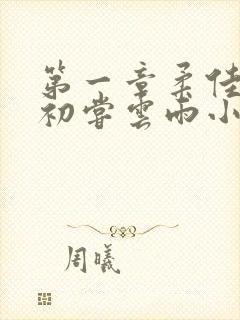 第一章柔佳
初尝云雨小
周曦